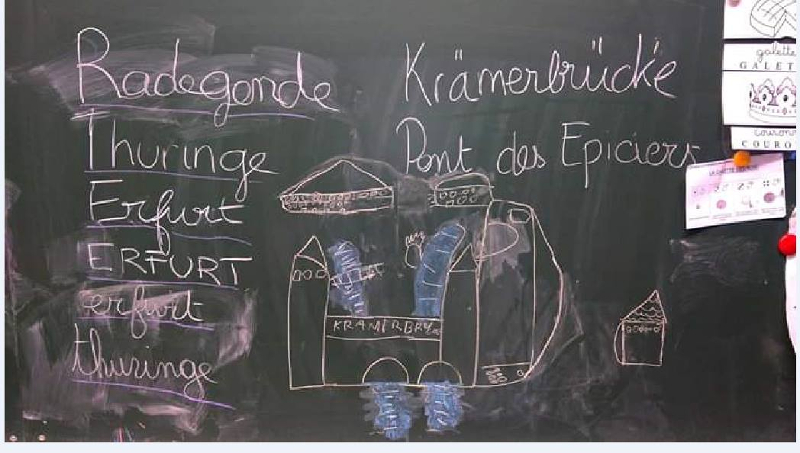 Radegonde
Thuringe
Erfurt
ERFURT
erfurt
thuringe
Krämerbrücke
Pont des Epiciers
KRAMERBRU
galette
GALET
couronn
COURO